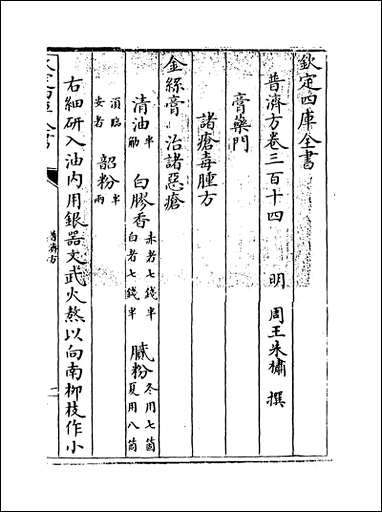 欽定四庫全書
普濟方卷三百十四 明 周王朱橚 撰
膏藥門
諸瘡毒腫方
金絲膏 治諸惡瘡
清油半觔 白膠香赤者七錢半白者七錢半 膩粉冬用七箇夏用八箇
須臨安者 韶粉半兩
右細研入油内用銀器文武火熬以向南柳枝作小
普濟方